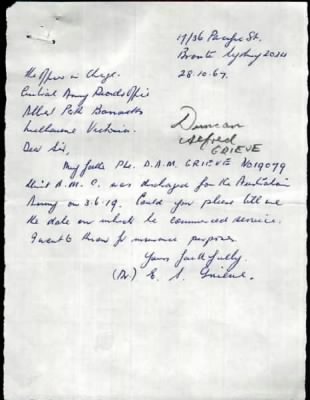 17/36 Pacific St.
Bronte Sydney 2024
28.10.67.
The Officer in Charge.
Central Army Records Office
Albert Park Barracks
Melbourne Victoria.
Duncan
Alfred
GRIEVE
Dear Sir,
My father Pte. D.A.M. GRIEVE No 19079
Unit A.M.C. was discharged from the Australian
Army on 3.6.19. Could you please tell me
the date on which he commenced service.
I want to know for insurance purposes.
Yours faithfully.
(Dr.) E. S. Grieve.